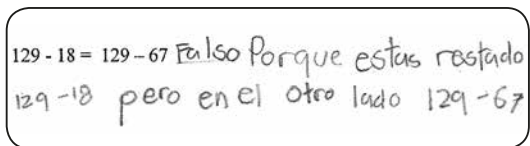 129 - 18 = 129 – 67 Falso Porque estas restado
129-18 pero en el otro lado 129-67